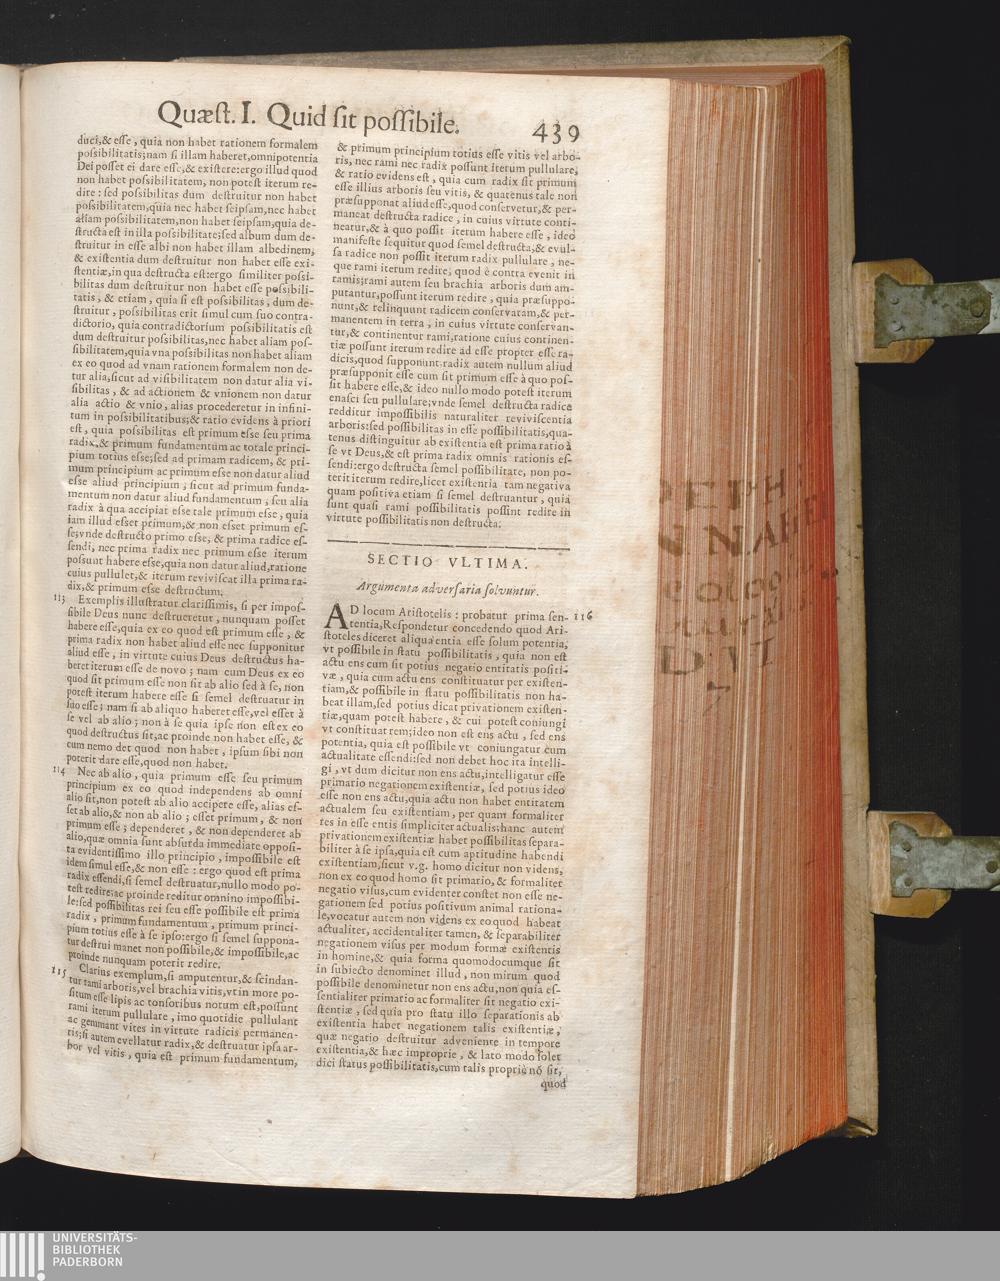 Quæst. I. Quid ſit poſſibile.
439
duci,& eſſe, quia non habet rationem formalem
poſsibilitatis;nam ſi illam haberet,omnipotentia
Dei poſſet ei dare eſſe,& exiſtere:ergo illud quod
non habet poſsibilitatem, non poteſt iterum re-
dire: ſed poſsibilitas dum deſtruitur non habet
poſsibilitatem,quia nec habet ſeipſam,nec habet
aliam poſsibilitatem,non habet ſeipſam,quia de-
ſtructa eſt in illa poſsibilitate;ſed album dum de-
ſtruitur in eſſe albi non habet illam albedinem,
& exiſtentia dum deſtruitur non habet eſſe exi-
ſtentiæ,in qua deſtructa eſt:ergo ſimiliter poſsi-
bilitas dum deſtruitur non habet eſſe poſsibili-
tatis, & etiam, quia ſi eſt poſsibilitas, dum de-
ſtruitur, poſsibilitas erit ſimul cum ſuo contra-
dictorio, quia contradictorium poſsibilitatis eſt
dum deſtruitur poſsibilitas,nec habet aliam poſ-
ſibilitatem,quia vna poſsibilitas non habet aliam
ex eo quod ad vnam rationem formalem non de-
tur alia,ſicut ad viſibilitatem non datur alia vi-
ſibilitas, & ad actionem & vnionem non datur
alia actio & vnio, alias procederetur in infini-
tum in poſsibilitatibus;& ratio evidens à priori
eſt, quia poſsibilitas eſt primum eſse ſeu prima
radix,& primum fundamentum ac totale princi-
pium totius eſse;ſed ad primam radicem, & pri-
mum principium ac primum eſse non datur aliud
eſse aliud principium, ſicut ad primum funda-
mentum non datur aliud fundamentum, ſeu alia
radix à qua accipiat eſse tale primum eſse, quia
iam illud eſset primum,& non eſset primum eſ-
ſe;vnde deſtructo primo eſse, & prima radice eſ-
ſendi, nec prima radix nec primum eſse iterum
poſsunt habere eſse,quia non datur aliud,ratione
cuius pullulet,& iterum reviviſcat illa prima ra-
dix,& primum eſse deſtructum.
113 Exemplis illuſtratur clariſſimis, ſi per impoſ-
ſibile Deus nunc deſtrueretur, nunquam poſſet
habere eſſe,quia ex eo quod eſt primum eſſe, &
prima radix non habet aliud eſſe nec ſupponitur
aliud eſſe, in virtute cuius Deus deſtructus ha-
beret iterum eſſe de novo; nam cum Deus ex eo
quod ſit primum eſſe non ſit ab alio ſed à ſe, non
poteſt iterum habere eſſe ſi ſemel deſtruatur in
ſuo eſſe; nam ſi ab aliquo haberet eſſe,vel eſſet à
ſe vel ab alio; non à ſe quia ipſe non eſt ex eo
quod deſtructus ſit;ac proinde non habet eſſe, &
cum nemo det quod non habet, ipſum ſibi non
poterit dare eſſe,quod non habet.
114 Nec ab alio, quia primum eſſe ſeu primum
principium ex eo quod independens ab omni
alio ſit,non poteſt ab alio accipere eſſe, alias eſ-
ſet ab alio,& non ab alio; eſſet primum, & non
primum eſſe; dependeret, & non dependeret ab
alio,quæ omnia ſunt abſurda immediate oppoſi-
ta evidentiſſimo illo principio, impoſſibile eſt
idem ſimul eſſe,& non eſſe: ergo quod eſt prima
radix eſſendi,ſi ſemel deſtruatur,nullo modo po-
teſt redire:ac proinde reditur omnino impoſſibi-
le:ſed poſſibilitas rei ſeu eſſe poſſibile eſt prima
radix, primum fundamentum, primum princi-
pium totius eſſe à ſe ipſo:ergo ſi ſemel ſuppona-
tur deſtrui manet non poſſibile,& impoſſibile,ac
proinde nunquam poterit redire.
115 Clarius exemplum,ſi amputentur,& ſcindan-
tur rami arboris,vel brachia vitis,vt in more po-
ſitum eſſe lipis ac tonſoribus notum eſt,poſſunt
rami iterum pullulare, imo quotidie pullulant
ac gemmant vites in virtute radicis permanen-
tis;ſi autem evellatur radix,& deſtruatur ipſa ar-
bor vel vitis, quia eſt primum fundamentum,
& primum principium totius eſſe vitis vel arbo-
ris, nec rami nec radix poſſunt iterum pullulare,
& ratio evidens eſt, quia cum radix ſit primum
eſſe illius arboris ſeu vitis, & quatenus tale non
præſupponat aliud eſſe,quod conſervetur,& per-
maneat deſtructa radice, in cuius virtute conti-
neatur,& à quo poſſit iterum habere eſſe, ideo
manifeſte ſequitur quod ſemel deſtructa,& evul-
ſa radice non poſſit iterum radix pullulare, ne-
que rami iterum redire; quod è contra evenit in
ramis;rami autem ſeu brachia arboris dum am-
putantur,poſſunt iterum redire, quia præſuppo-
nunt,& relinquunt radicem conſervatam,& per-
manentem in terra, in cuius virtute conſervan-
tur,& continentur rami;ratione cuius continen-
tiæ poſſunt iterum redire ad eſſe propter eſſe ra-
dicis,quod ſupponunt:radix autem nullum aliud
præſupponit eſſe cum ſit primum eſſe à quo poſ-
ſit habere eſſe,& ideo nullo modo poteſt iterum
enaſci ſeu pullulare;vnde ſemel deſtructa radice
redditur impoſſibilis naturaliter reviviſcentia
arboris:ſed poſſibilitas in eſſe poſſibilitatis,qua-
tenus diſtinguitur ab exiſtentia eſt prima ratio à
ſe vt Deus,& eſt prima radix omnis rationis eſ-
ſendi:ergo deſtructa ſemel poſſibilitate, non po-
terit iterum redire,licet exiſtentia tam negativa
quam poſitiva etiam ſi ſemel deſtruantur, quia
ſunt quaſi rami poſſibilitatis poſſint redire in
virtute poſſibilitatis non deſtructa.
SECTIO VLTIMA.
Argumenta adverſaria ſolvuntur.
AD locum Ariſtotelis: probatur prima ſen- 116
tentia,Reſpondetur concedendo quod Ari-
ſtoteles diceret aliqua entia eſſe ſolum potentia,
vt poſſibile in ſtatu poſſibilitatis, quia non eſt
actu ens cum ſit potius negatio entitatis poſiti-
væ, quia cum actu ens conſtituatur per exiſten-
tiam,& poſſibile in ſtatu poſſibilitatis non ha-
beat illam,ſed potius dicat privationem exiſten-
tiæ,quam poteſt habere, & cui poteſt coniungi
vt conſtituat rem;ideo non eſt ens actu, ſed ens
potentia, quia eſt poſſibile vt coniungatur cum
actualitate eſſendi:ſed non debet hoc ita intelli-
gi, vt dum dicitur non ens actu,intelligatur eſſe
primario negationem exiſtentiæ, ſed potius ideo
eſſe non ens actu,quia actu non habet entitatem
actualem ſeu exiſtentiam, per quam formaliter
res in eſſe entis ſimpliciter actualis;hanc autem
privationem exiſtentiæ habet poſſibilitas ſepara-
biliter à ſe ipſa,quia eſt cum aptitudine habendi
exiſtentiam,ſicut v.g. homo dicitur non videns,
non ex eo quod homo ſit primario,& formaliter
negatio viſus,cum evidenter conſtet non eſſe ne-
gationem ſed potius poſitivum animal rationa-
le,vocatur autem non videns ex eo quod habeat
actualiter, accidentaliter tamen, & ſeparabiliter
negationem viſus per modum formæ exiſtentis
in homine,& quia forma quomodocumque ſit
in ſubiecto denominet illud, non mirum quod
poſſibile denominetur non ens actu,non quia eſ-
ſentialiter primario ac formaliter ſit negatio exi-
ſtentiæ, ſed quia pro ſtatu illo ſeparationis ab
exiſtentia habet negationem talis exiſtentiæ,
quæ negatio deſtruitur adveniente in tempore
exiſtentia,& hæc improprie, & lato modo ſolet
dici ſtatus poſſibilitatis,cum talis propriè nõ ſit,
quod
UNIVERSITÄTS-
BIBLIOTHEK
PADERBORN